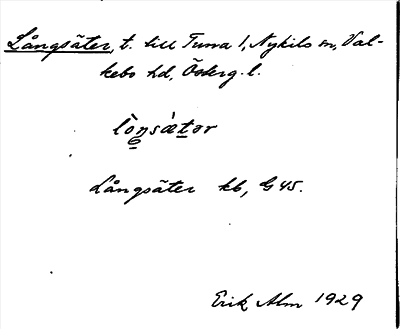 Långsäter, t. till Tuna 1, Nykils sn, Val-
kebo hd, Österg. l.
Långsäter kb, G 45.
Erik Alm 1929